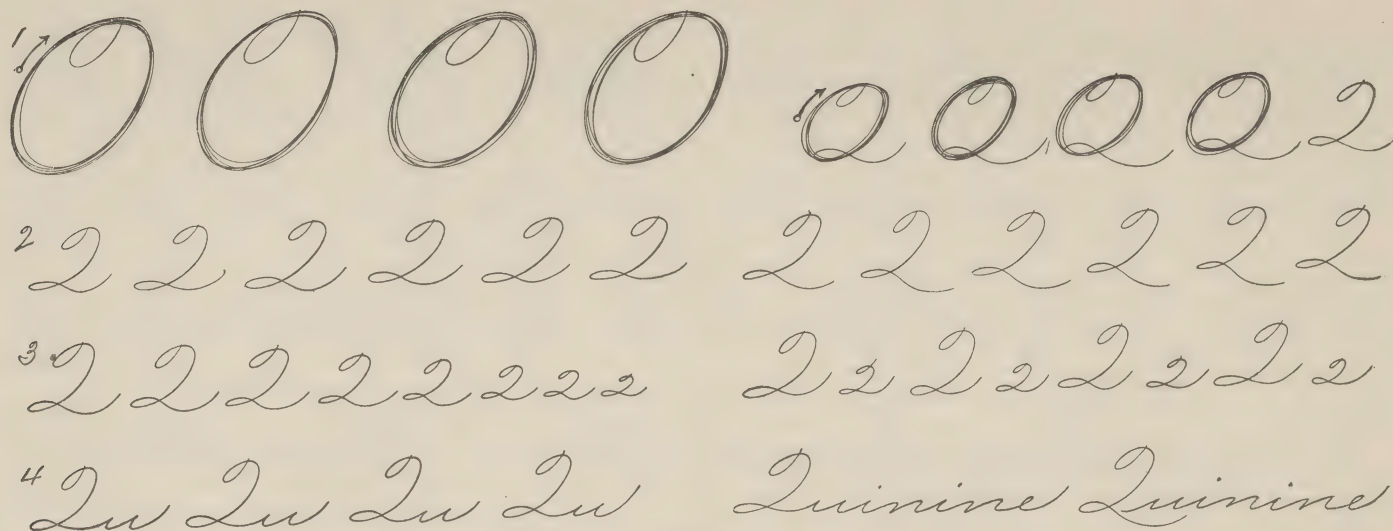 1 Q Q Q Q Q
2 Q Q Q Q Q Q Q Q Q Q Q Q
3 Q Q Q Q Q Q Q Q Q Q Q Q Q Q Q Q
4 Qu Qu Qu Qu Quinine Quinine